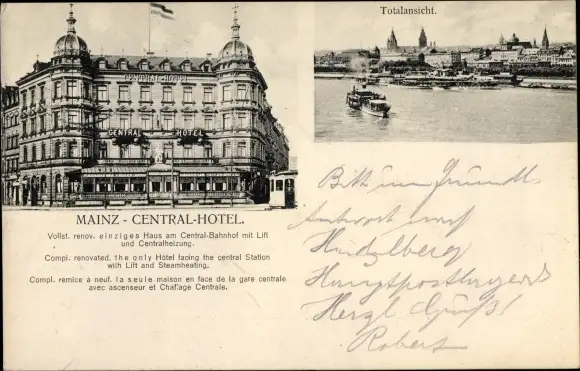 Totalansicht.
CENTRAL HOTEL
CENTRAL HOTEL
MAINZ - CENTRAL-HOTEL.
Vollst. renov. einziges Haus am Central-Bahnhof mit Lift
und Centralheizung.
Compl. renovated, the only Hôtel facing the central Station
with Lift and Steamheating.
Compl. remice à neuf. la seule maison en face de la gare centrale
avec ascenseur et Chaffage Centrale.
Bitte um
Antwort nach
Heidelberg
Hauptpostlagernd
Herzl. Gruß!
Robert